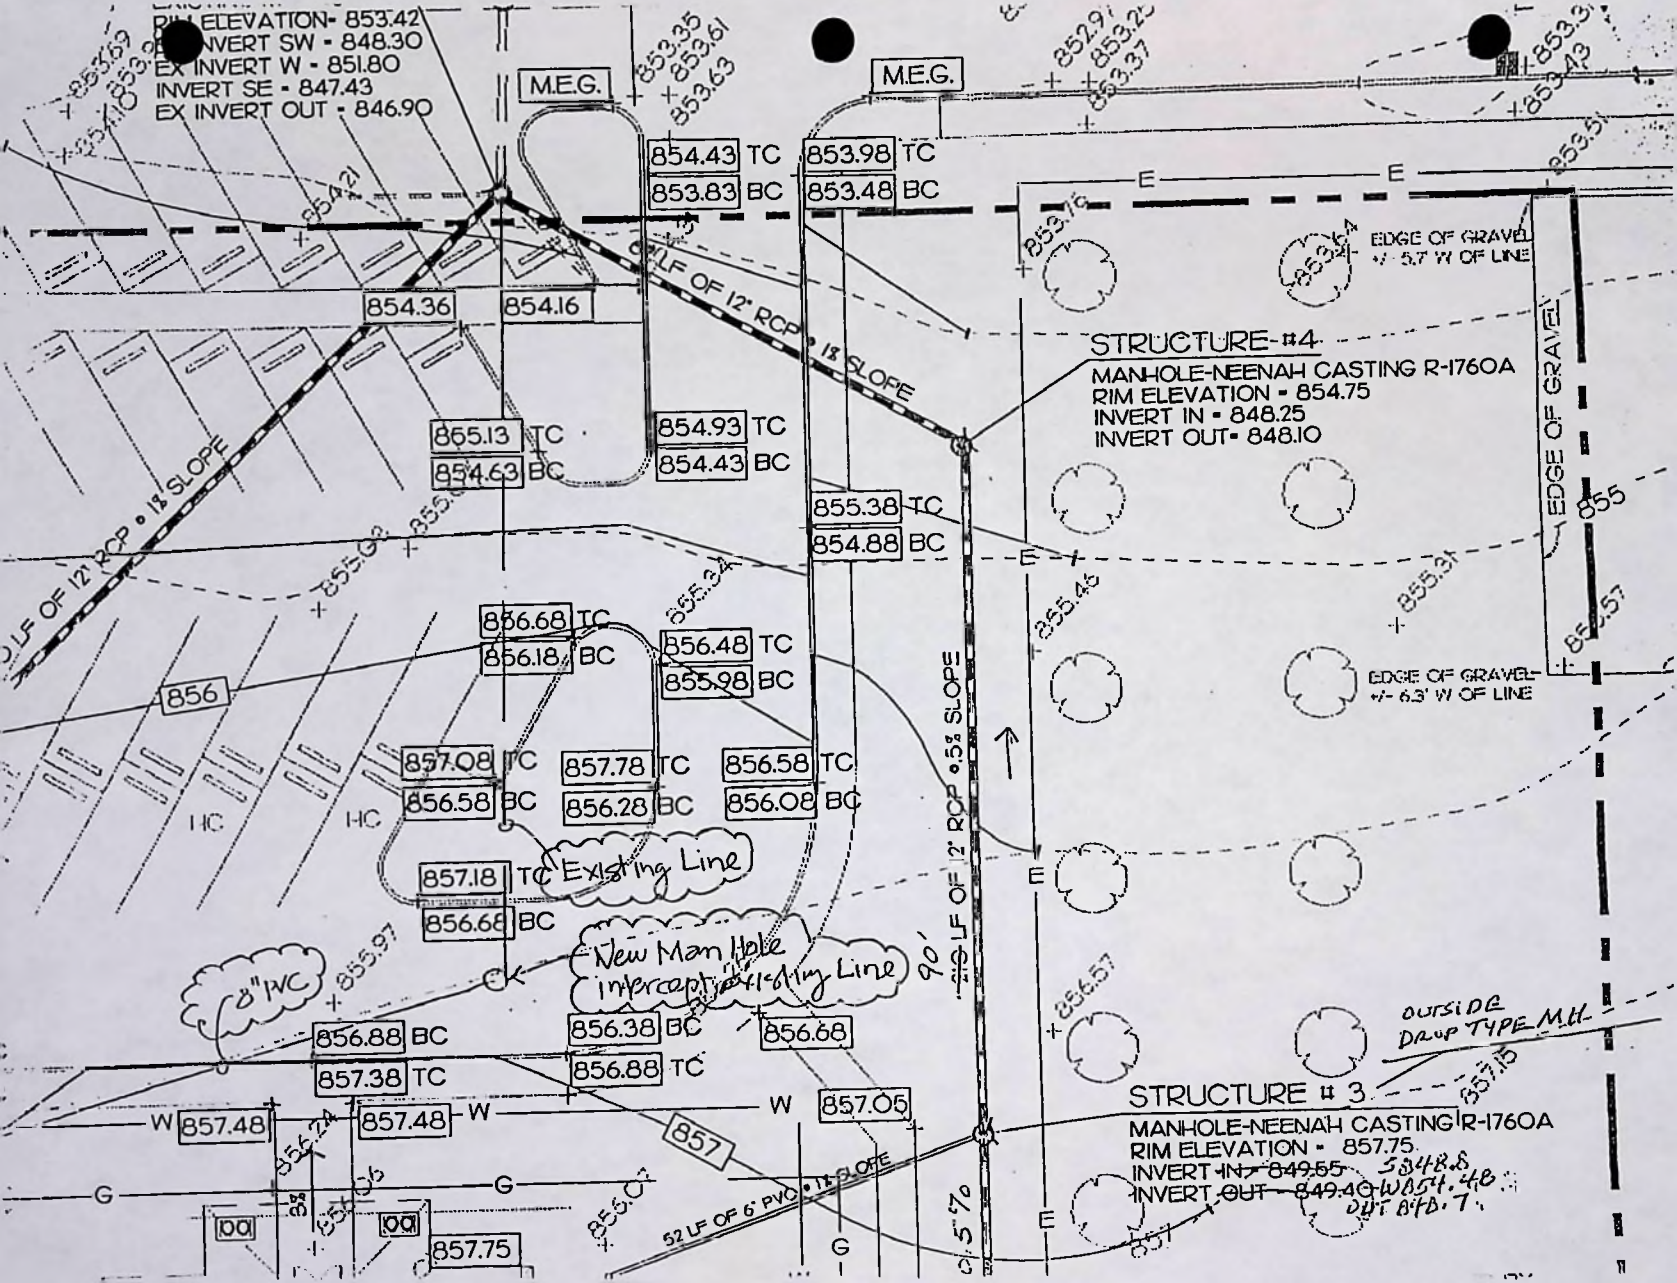 RIM ELEVATION- 853.42
INVERT SW - 848.30
EX INVERT W - 851.80
INVERT SE - 847.43
EX INVERT OUT - 846.90
M.E.G.
M.E.G.
853.35
853.61
853.63
852.97
853.25
853.37
853.43
853.51
853.69
854.10
854.21
854.43 TC
853.83 BC
853.98 TC
853.48 BC
E
E
853.76
853.64
EDGE OF GRAVEL
+/- 5.7' W OF LINE
854.36
854.16
LF OF 12" RCP • 1% SLOPE
STRUCTURE-#4
MANHOLE-NEENAH CASTING R-1760A
RIM ELEVATION - 854.75
INVERT IN - 848.25
INVERT OUT- 848.10
EDGE OF GRAVEL
855.13 TC
854.63 BC
854.93 TC
854.43 BC
LF OF 12" RCP • 1% SLOPE
855.38 TC
854.88 BC
855
E
855.34
855.46
855.31
855.57
856.68 TC
856.18 BC
856.48 TC
855.98 BC
856
EDGE OF GRAVEL
+/- 6.3' W OF LINE
857.08 TC
856.58 BC
857.78 TC
856.28 BC
856.58 TC
856.08 BC
HC
HC
Existing Line
857.18 TC
856.68 BC
E
LF OF 12" RCP • .5% SLOPE
90'
New Man Hole
intercepting existing Line
8" PVC
855.97
856.57
856.88 BC
857.38 TC
856.38 BC
856.88 TC
856.68
OUTSIDE
DROP TYPE M.H.
857.15
W
857.48
857.48
W
W
857.05
857
STRUCTURE # 3
MANHOLE-NEENAH CASTING R-1760A
RIM ELEVATION - 857.75
INVERT IN- 849.55 S848.8
INVERT OUT - 849.40 W854.48
OUT 848.7
856.24
G
G
G
52 LF OF 6" PVC • 1% SLOPE
856.07
857.75
0.5%
E
857